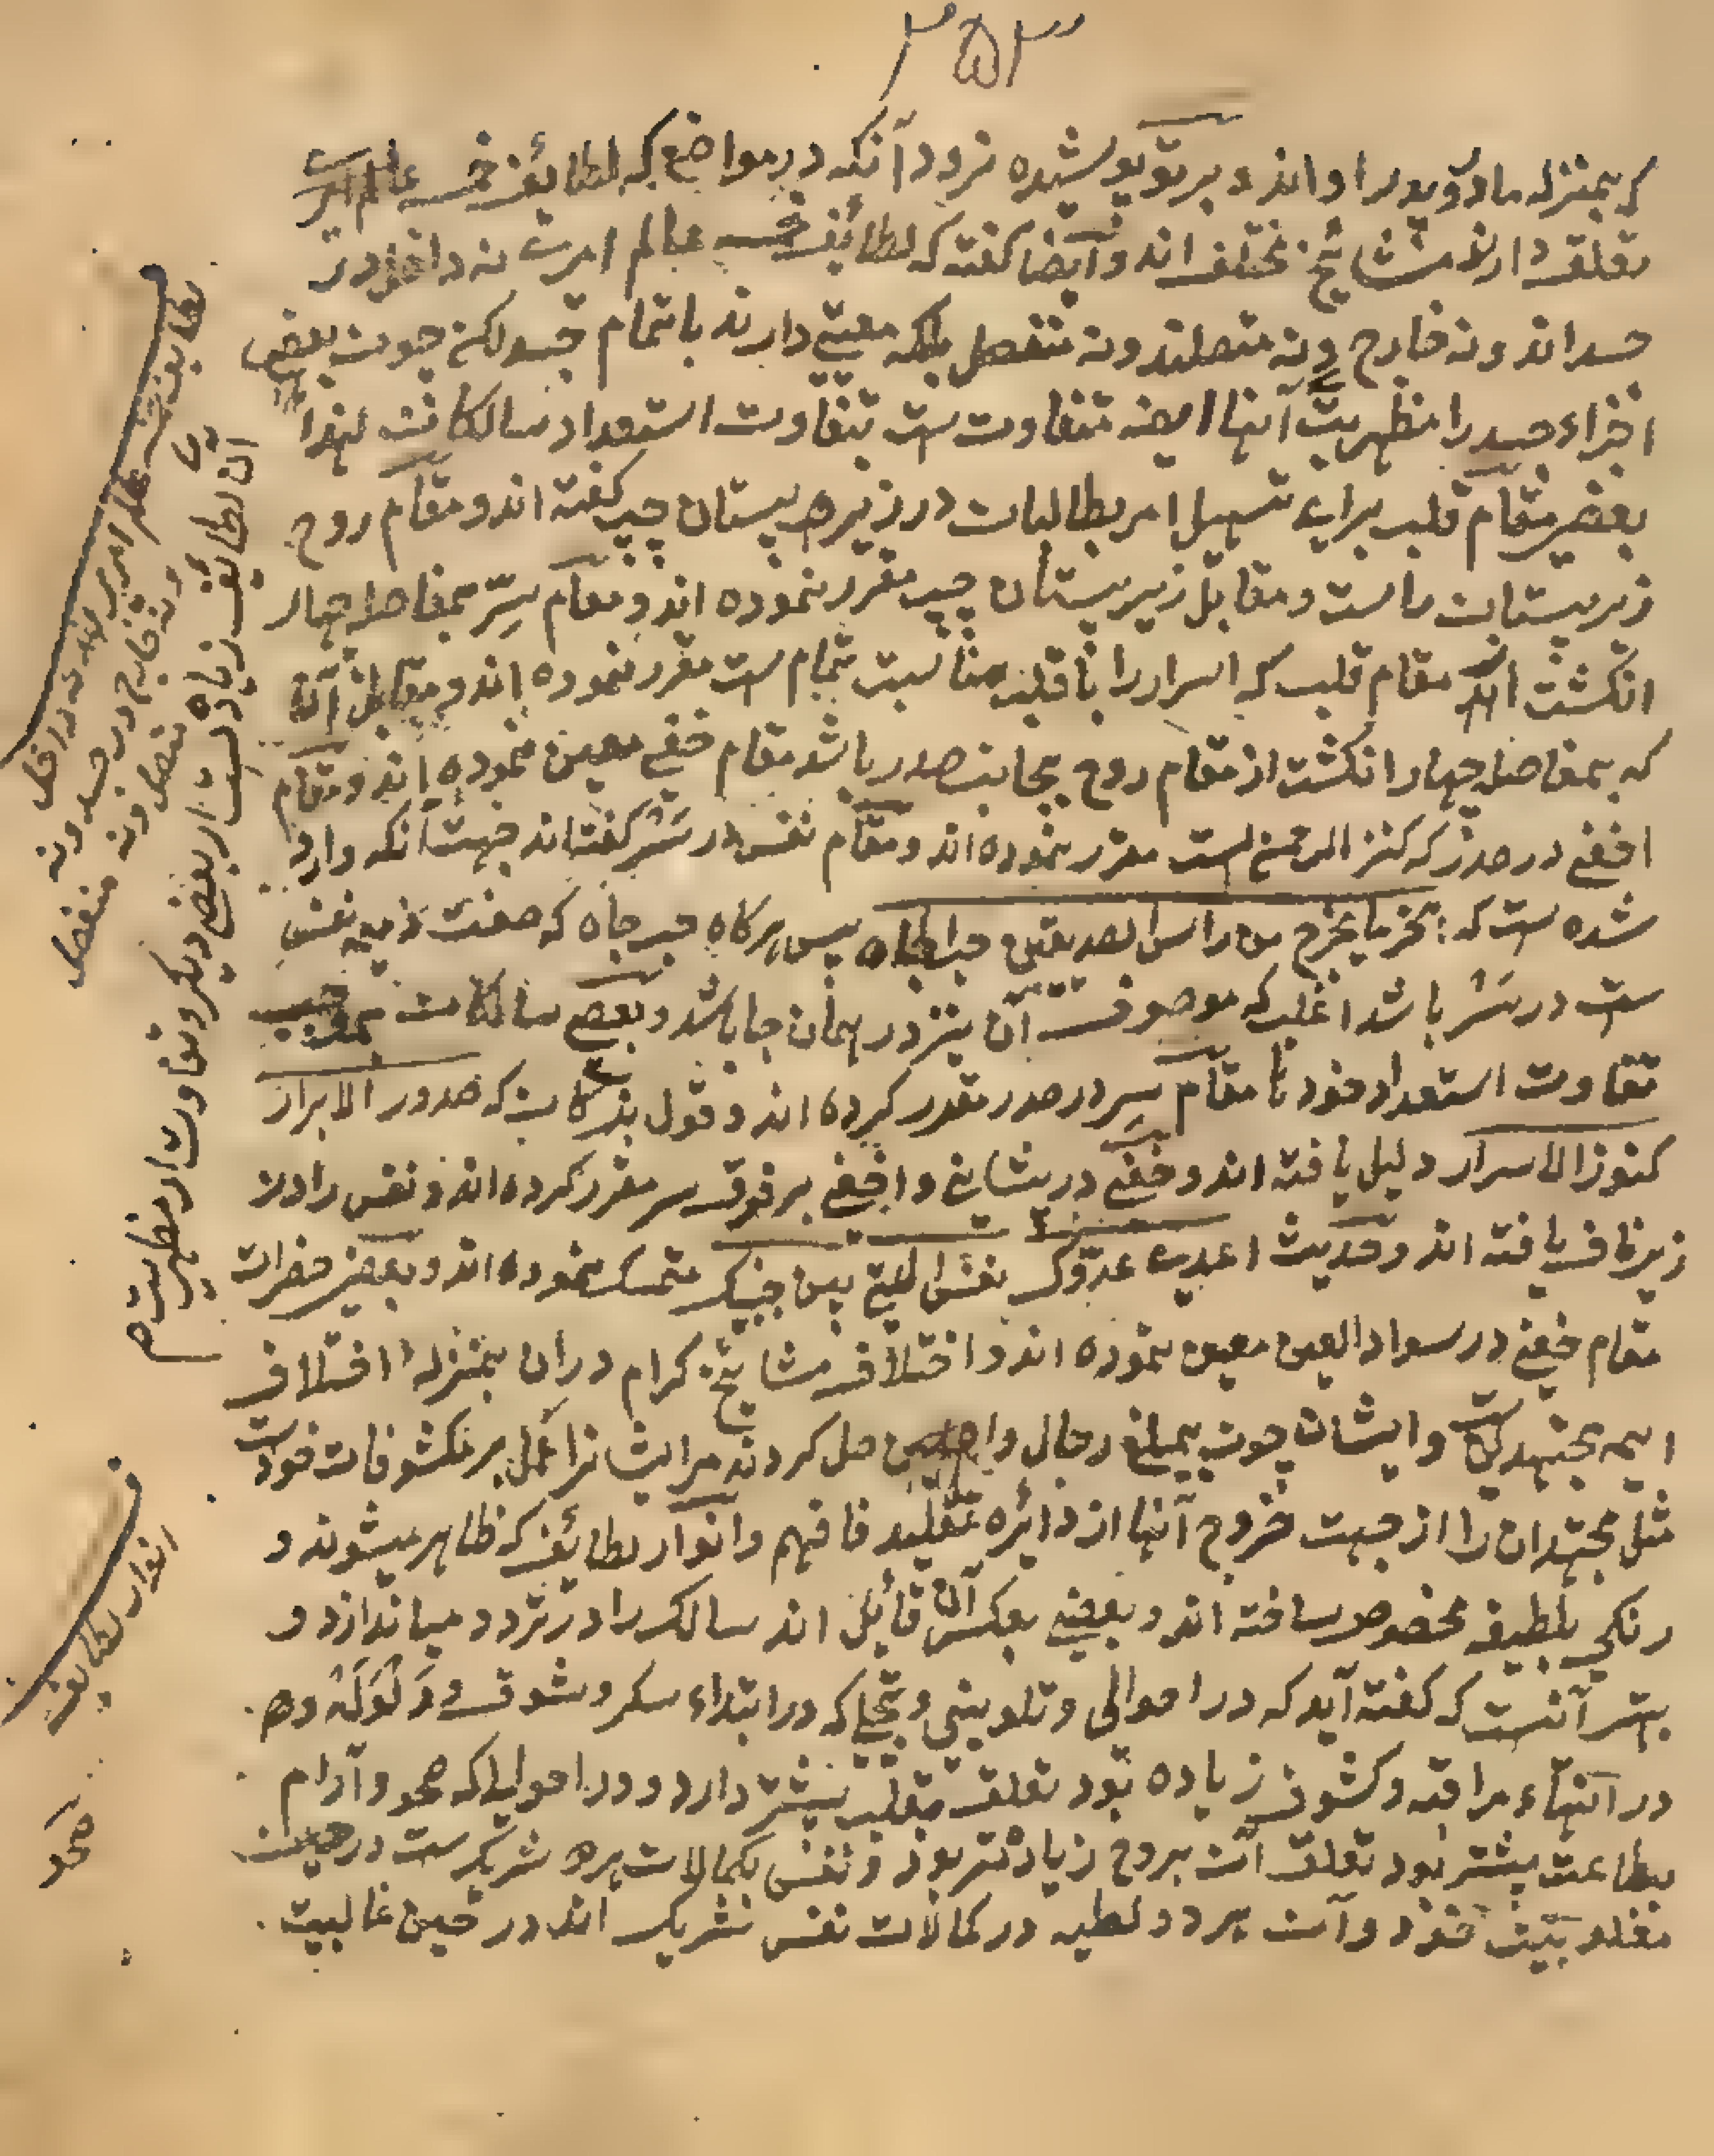 ۲۵۳
که بمنزله مادر و پدر او اند و بر تو پوشیده نرود آنکه در مواضع که لطائف خمسه عالم امر
تعلق دارند مشایخ مختلف اند و ایضا گفته که لطائف خمسه عالم امرست نه داخل در
جسد اند و نه خارج و نه متصلند و نه منفصل بلکه معیتی دارند باتمام جسد لکن چون بعضی
اجزاء جسد را مظهریت آنها متفاوت ست بتفاوت استعداد سالکانست لهذا
بعضی مقام قلب برای تسهیل امر بطالبان در زیر پستان چپ گفته اند و مقام روح
زیر پستان راست و مقابل زیر پستان چپ مقرر نموده اند و مقام سِرّ بمفاصله چهار
انگشت از مقام قلب که اسرار را با قلب مناسبت تمام ست مقرر نموده اند و مقابل آن
که بمفاصل چهار انگشت از مقام روح بجانب صدر باشد مقام خفی معین نموده اند و مقام
اخفی در صدر که کنز الرحمن است مقرر نموده اند و مقام نفس در سَر گفته اند جهت آنکه وارد
شده ست که آخر ما یخرج من راس الصدیقین حب الجاه پس هر گاه حب جاه که صفت ذمیمه نفس
ست در سَر باشد اغلب که موصوف آن نیز در همان جا باشد و بعضی سالکان بموجب
تفاوت استعداد خود تا مقام سِر در صدر مقرر کرده اند و قول بزرگان که صدور الابرار
کنوز الاسرار دلیل یافته اند و خفی در پیشانی و اخفی بر فوق سر مقرر کرده اند و نفس را در
زیر ناف یافته اند و حدیث اعدی عدوّک نفسک التی بین جنبیک متمسک نموده اند و بعضی حضرات
مقام خفی در سواد العین معین نموده اند و اختلاف مشایخ کرام در ان بمنزلهٔ اختلاف
ایمه مجتهدین ست و ایشان چون بمبلغ رجال واصلین حل کردند مر ایشانرا عمل بر مکشوفات خودست
مثل مجتهدان را از جهت خروج آنها از دائره تقلید فافهم و انوار لطائف که ظاهر میشوند و
رنگی بلطیفه مخصوص ساخته اند و بعضی بعکس آن قائل اند سالک را در تردد میاندازد و
بهتر آنست که گفته آید که در احوالی و تلوینی و تجلی که در ابتداء سکر و شوق و وَلوَلَهٔ و
در انتهاء مراقبه و کشوف زیاده بود تعلق بقلب بیشتر دارد و در احوالیکه صحو و آرام
بطاعت بیشتر بود تعلق آن بروح زیادتر بود و نفس بکمالات هر شریک ست در حین
مغلوبیت خود و آن هر دو لطیفه در کمالات نفس شریک اند در حین غالبیت
لطایف خمسه عالم امر نه داخل
و نه خارج در جسد و نه
متصل و نه منفصل
ان لطائف زیاده است از بعضی دیگر و تفاوت از مظهریت
انوار لطایف
صحو